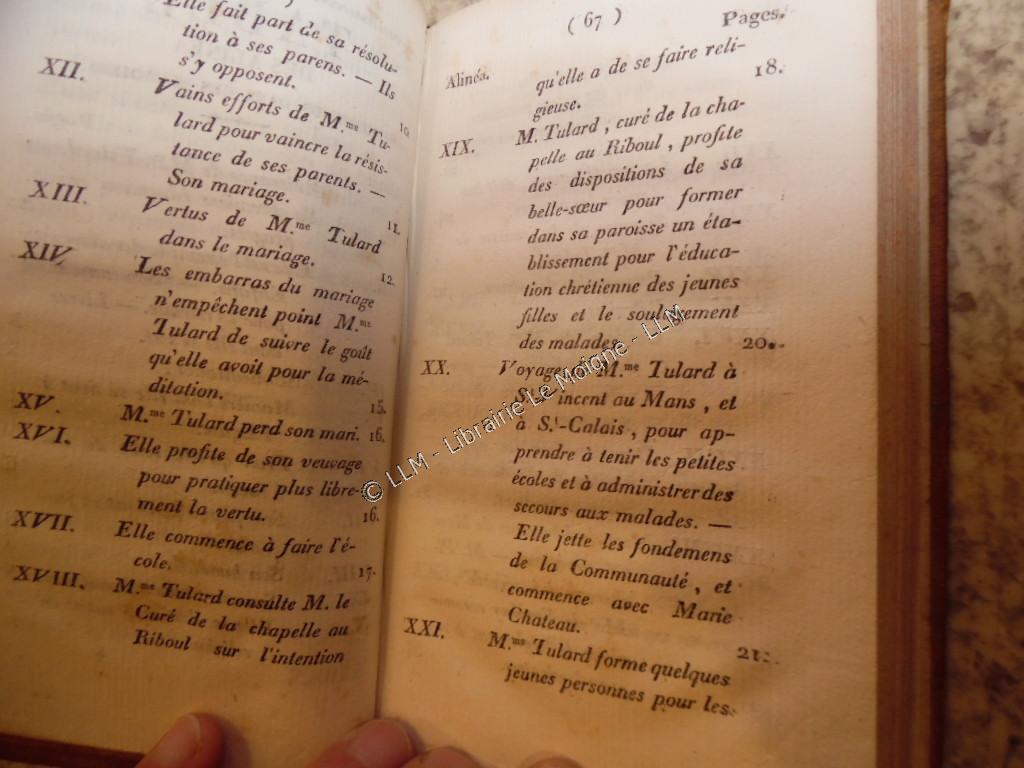 Elle fait part de sa résolu-
tion à ses parens. — Ils
s'y opposent. 10.
XII. Vains efforts de M.me Tu-
lard pour vaincre la résis-
tance de ses parents. —
Son mariage. 11.
XIII. Vertus de M.me Tulard
dans le mariage. 12.
XIV. Les embarras du mariage
n'empêchent point M.me
Tulard de suivre le goût
qu'elle avoit pour la mé-
ditation. 15.
XV. M.me Tulard perd son mari. 16.
XVI. Elle profite de son veuvage
pour pratiquer plus libre-
ment la vertu. 16.
XVII. Elle commence à faire l'é-
cole. 17.
XVIII. M.me Tulard consulte M. le
Curé de la chapelle au
Riboul sur l'intention
(67)
Alinéa. Pages.
qu'elle a de se faire reli-
gieuse. 18.
XIX. M. Tulard, curé de la cha-
pelle au Riboul, profite
des dispositions de sa
belle-sœur pour former
dans sa paroisse un éta-
blissement pour l'éduca-
tion chrétienne des jeunes
filles et le soulagement
des malades. 20.
XX. Voyage de M.me Tulard à
St. Vincent au Mans, et
à S.t-Calais, pour ap-
prendre à tenir les petites
écoles et à administrer des
secours aux malades. —
Elle jette les fondemens
de la Communauté, et
commence avec Marie
Chateau. 21.
XXI. M.me Tulard forme quelques
jeunes personnes pour les
© LLM - Librairie Le Moigne - LLM